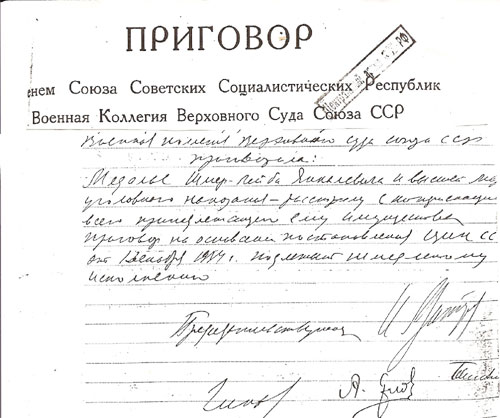 ПРИГОВОР
енем Союза Советских Социалистических Республик
Военная Коллегия Верховного Суда Союза ССР
Военная коллегия Верховного суда союза ССР
приговорила:
Медалье Шмер-Лейба Янкелевича к высшей мере
уголовного наказания – расстрелу с конфискацией
всего принадлежащего ему имущества
Приговор на основании постановления ЦИК СС
от 1 декабря 1934 г. подлежит немедленному
исполнению
Председательствующий